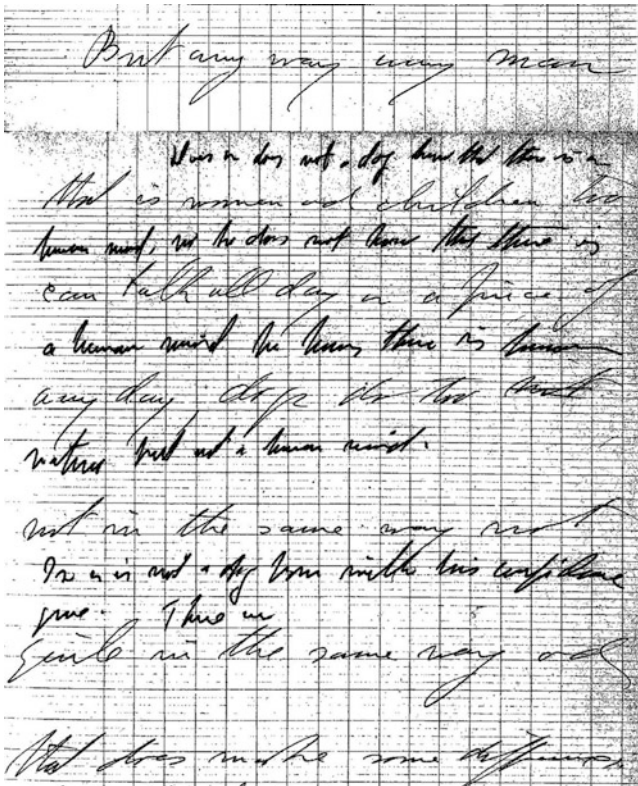 But any way any man
Does or does not a dog know that there is a
that is women and children too
human mind, no he does not know that there is
can talk all day or a piece of
a human mind he knows there is human
any day, dogs do too but
nature but not a human mind.
not in the same way not
Is or is not a dog born with his confidence
gone. There are
quite in the same way and
that does make some difference